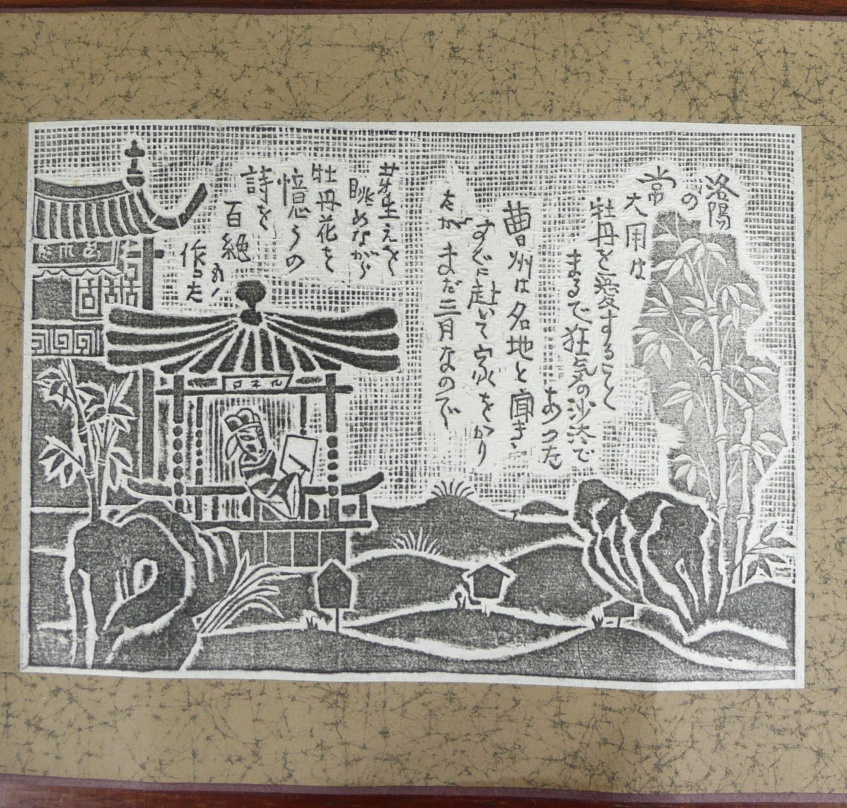 洛陽
の
常
大用は
牡丹を愛すること
まるで狂気の沙汰で
あった
曹州は名地と聞き
すぐに赴いて家をかり
たが まだ二月なので
芽生えを
眺めながら
牡丹花を
憶うの
詩を
百絶も
作った